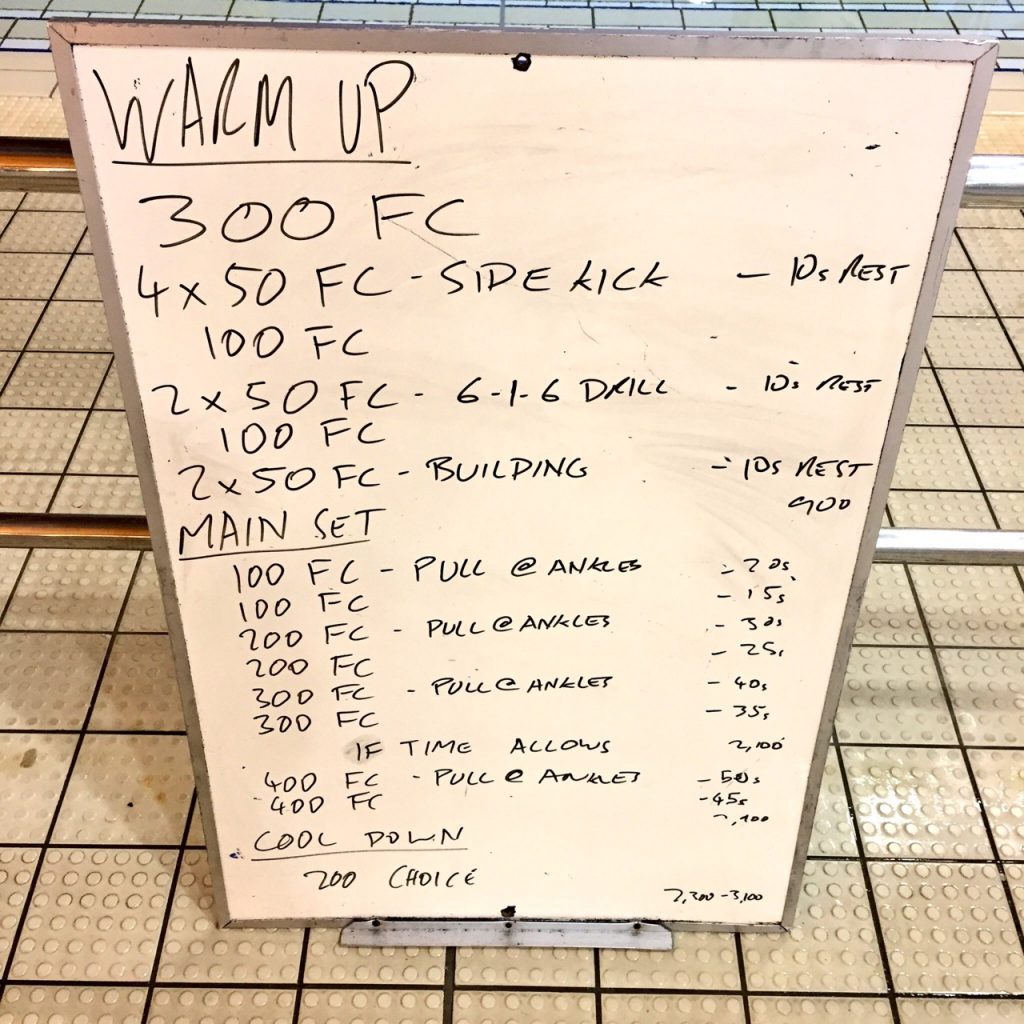 WARM UP
300 FC
4 x 50 FC - SIDE KICK - 10s REST
100 FC
2 x 50 FC - 6-1-6 DRILL - 10s REST
100 FC
2 x 50 FC - BUILDING - 10s REST
900
MAIN SET
100 FC - PULL @ ANKLES - 20s
100 FC - 15s
200 FC - PULL @ ANKLES - 30s
200 FC - 25s
300 FC - PULL @ ANKLES - 40s
300 FC - 35s
IF TIME ALLOWS 2,100
400 FC - PULL @ ANKLES - 50s
400 FC - 45s
COOL DOWN
200 CHOICE
2,300 - 3,100